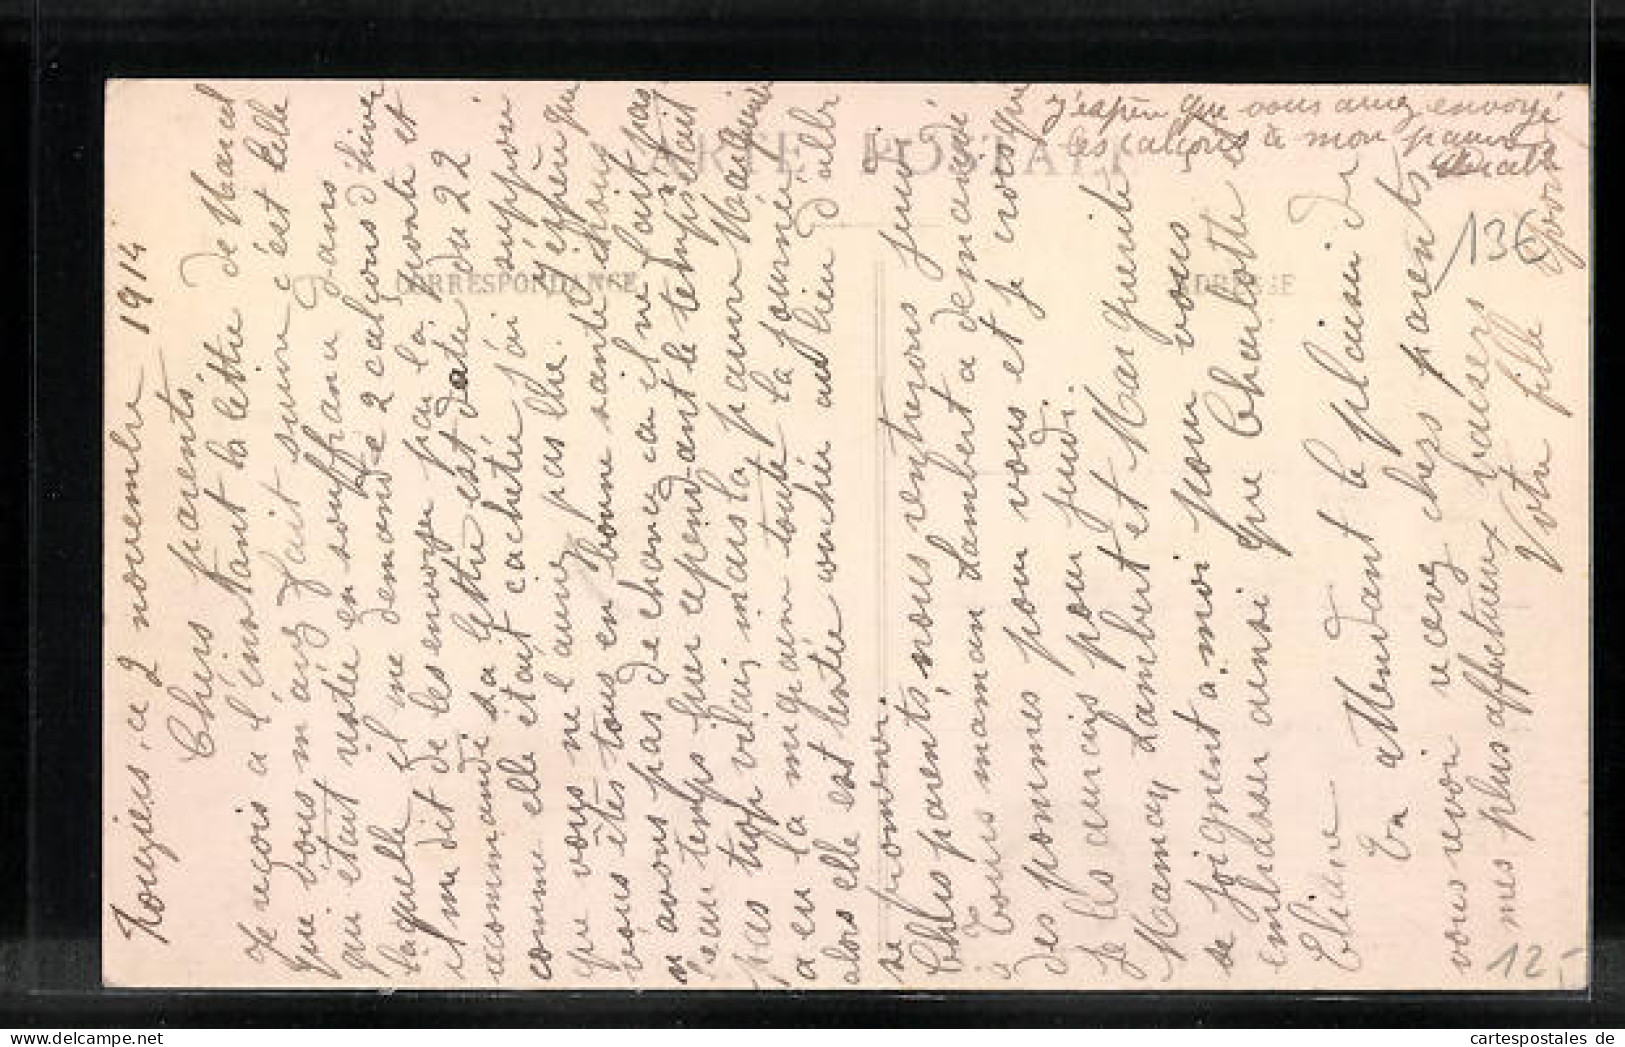 ce 2 novembre 1914
Chers parents,
Je reçois à l'instant la lettre de Marcel
que vous m'avez fait suivre c'est celle
qui était restée en souffrance dans
laquelle il me demande 2 calçons d'hiver
il me dit de les envoyer par la poste et
recommandé sa lettre est datée du 22
comme elle était cachetée j'ai supposé
que vous ne l'avez pas lue. J'espère que
vous êtes tous en bonne santé nous
n'avons pas de chance ca il ne fait pas
beau temps hier cependant le temps était
pas trop vilain mais la pauvre Marguerite
a eu la migraine toute la journée
alors elle est restée couchée au lieu d'aller
se promener.
Chers parents, nous rentrons jeudi
à Tours maman Lambert a demandé
des pommes pour vous et je crois que
je les aurais pour jeudi.
Maman Lambert et Marguerite
se joignent à moi pour vous
embrasser ainsi que Charlotte et
Eliane
En attendant le plaisir de
vous revoir recevez chers parents
mes plus affectueux baisers
Votre fille
J'espère que vous avez envoyé
les calçons à mon pauvre
CARTE POSTALE
CORRESPONDANCE
ADRESSE
136
12,-
cartespostales de